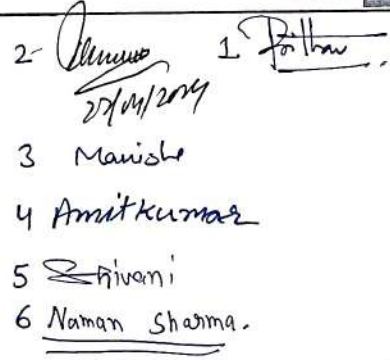 2- 1
27/04/2024
3 Manish
4 Amit Kumar
5 Shivani
6 Naman Sharma.